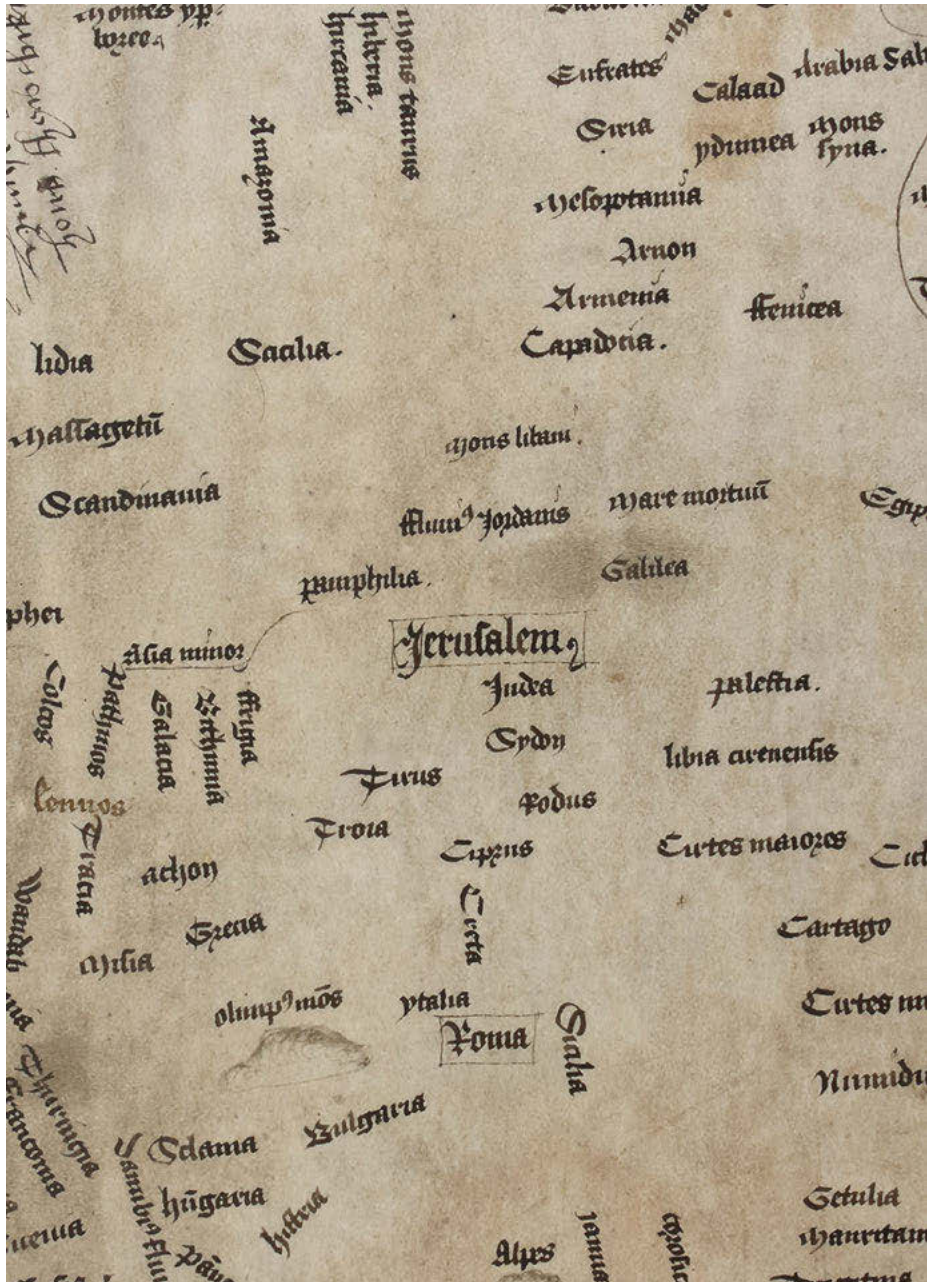 montes yp-
boree.
hiberia.
hircania
mons taurus
Eufrates
Calaad
Arabia Sab
Amazonia
Siria
ydumea
mons
syna.
Mesopotamia
Arnon
Armenia
ffenicea
Capadocia.
lidia
Scicilia.
Massagetū
mons libani.
Scandinauia
ffluuiꝰ Jordanis
mare mortuū
Egip
pamphilia.
Galilea
phei
Asia minor
Jerusalem
Judea
palestia.
Colcos
Pathmos
Galacia
Bithinia
ffrigia
Sydon
libia cirenensis
Tirus
Rodus
lennos
Troia
Ciprus
Cirtes maiores
Tracia
achon
Creta
Grecia
Cartago
Misia
olimpꝰ mōs
ytalia
Cirtes mi
Roma
Sicilia
Numidi
Thuringia
franconia
Bulgaria
Sclauia
hūgaria
histria
Getulia
Mauritani
Alpes